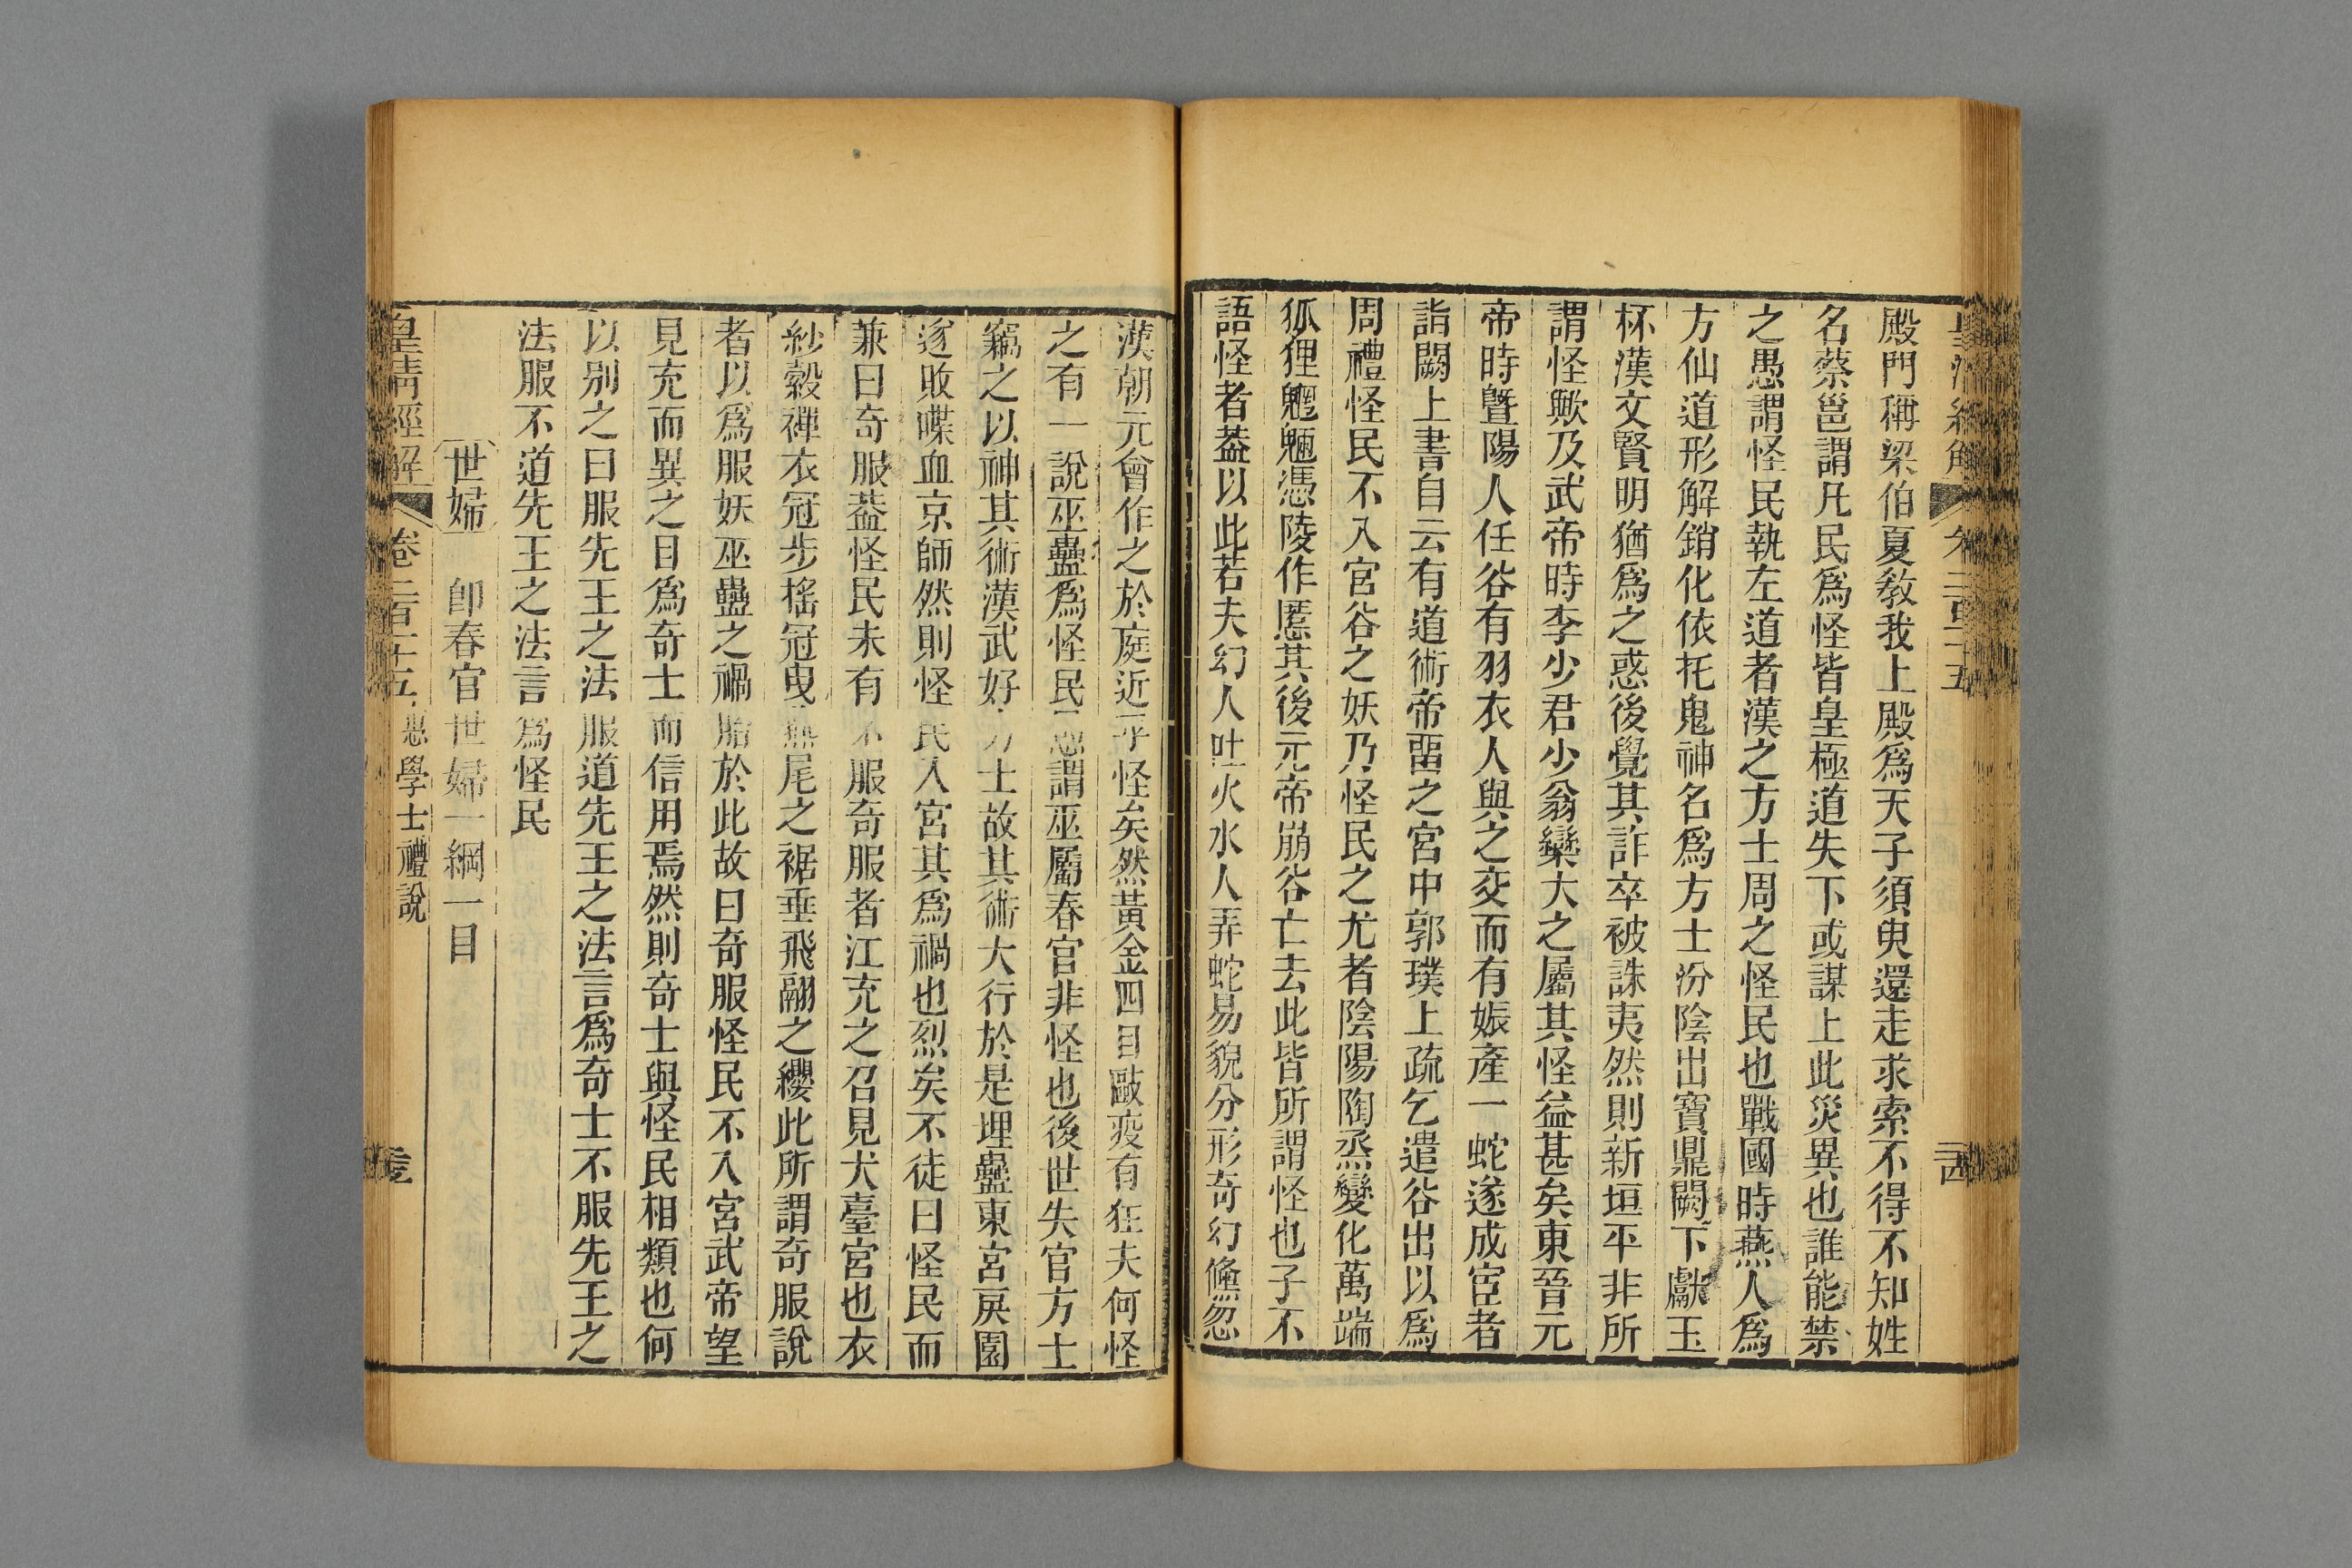 殿門稱梁伯夏敎我上殿爲天子須臾還走求索不得不知姓
名蔡邕謂凡民爲怪皆皇極道失下或謀上此災異也誰能禁
之愚謂怪民執左道者漢之方士周之怪民也戰國時燕人爲
方仙道形解銷化依托鬼神名爲方士汾陰出寶鼎闕下獻玉
杯漢文賢明猶爲之惑後覺其詐卒被誅夷然則新垣平非所
謂怪歟及武帝時李少君少翁欒大之屬其怪益甚矣東晉元
帝時曁陽人任谷有羽衣人與之交而有娠產一蛇遂成宦者
詣闕上書自云有道術帝畱之宮中郭璞上疏乞遣谷出以爲
周禮怪民不入宮谷之妖乃怪民之尤者陰陽陶烝變化萬端
狐狸魍魎憑陵作慝其後元帝崩谷亡去此皆所謂怪也子不
語怪者葢以此若夫幻人吐火水人弄蛇易貌分形奇幻儵忽
漢朝元會作之於庭近乎怪矣然黃金四目敺疫有狂夫何怪
之有一說巫蠱爲怪民愚謂巫屬春官非怪也後世失官方士
竊之以神其術漢武好方士故其術大行於是埋蠱東宮戾園
遂敗喋血京師然則怪民入宮其爲禍也烈矣不徒曰怪民而
兼曰奇服葢怪民未有不服奇服者江充之召見犬臺宮也衣
紗縠襌衣冠步搖冠曳燕尾之裾垂飛翮之纓此所謂奇服說
者以爲服妖巫蠱之禍胎於此故曰奇服怪民不入宮武帝望
見充而異之目爲奇士而信用焉然則奇士與怪民相類也何
以别之曰服先王之法服道先王之法言爲奇士不服先王之
法服不道先王之法言爲怪民
世婦 卽春官世婦一綱一目
皇淸經解 卷二百十五 惠學士禮說